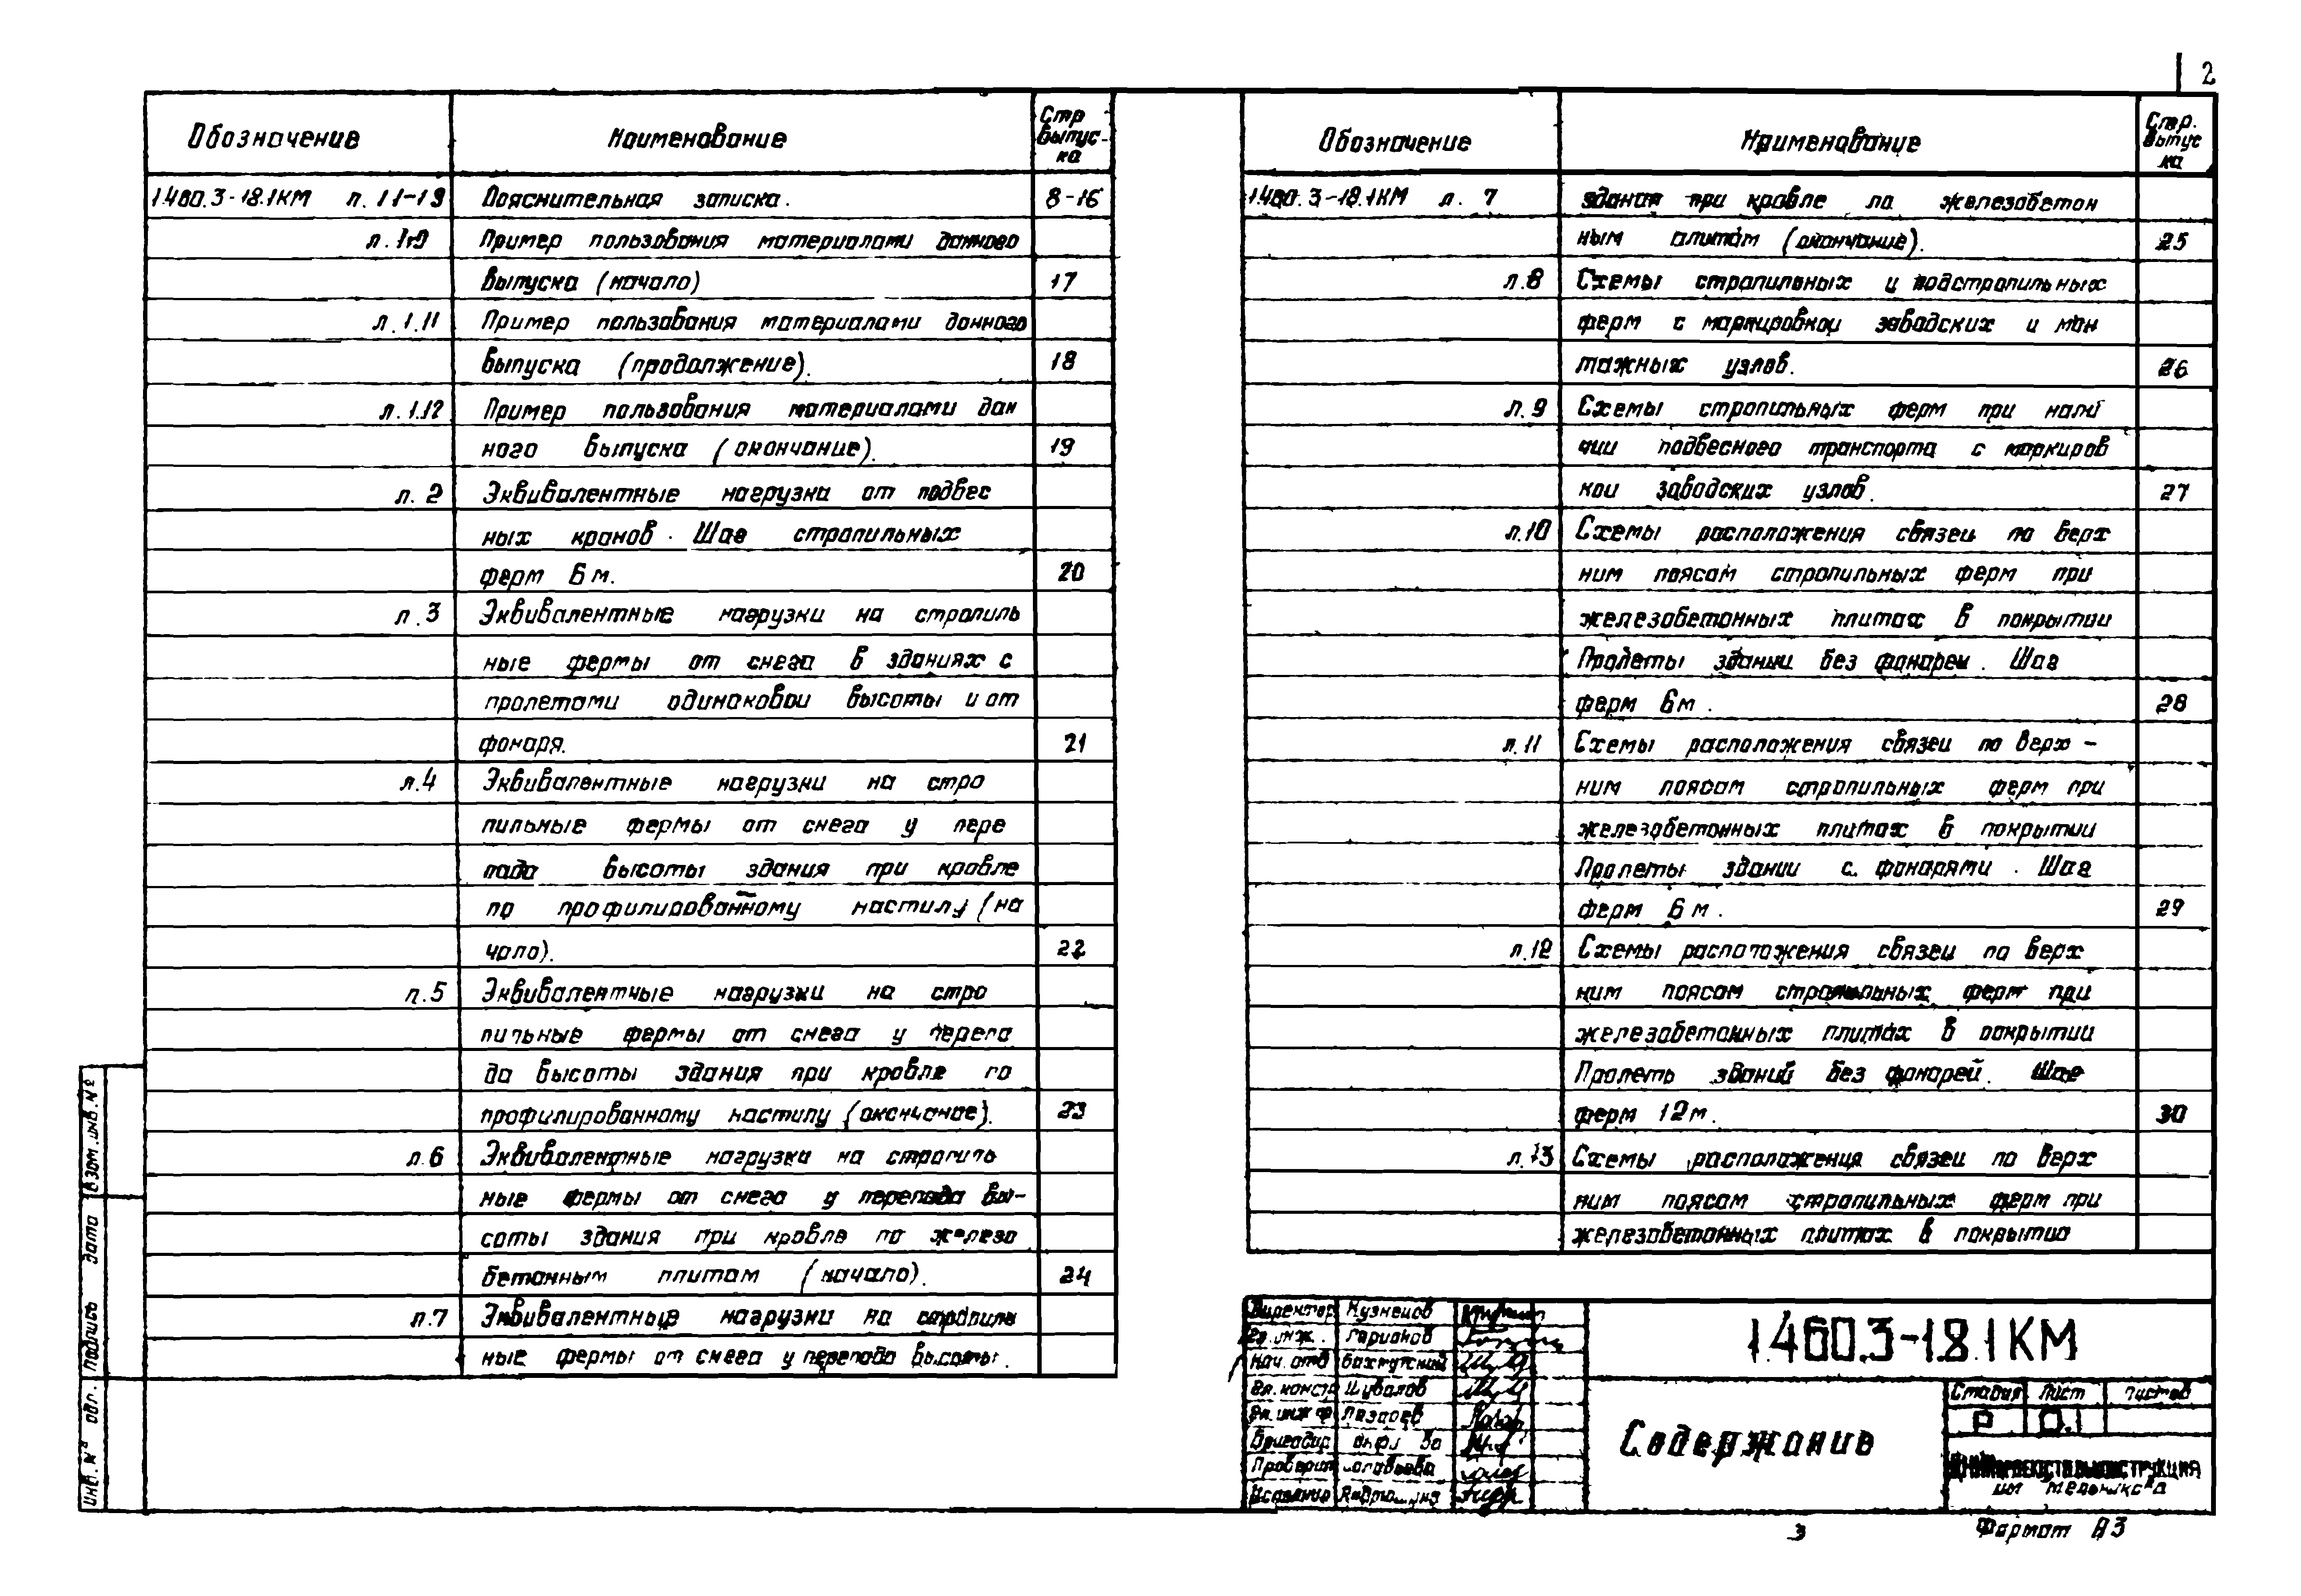 2
Обозначение Наименование Стр выпус-ка
1.460.3-18.1КМ л. 1.1-1.9 Пояснительная записка. 8-16
л. 1.10 Пример пользования материалами данного
выпуска (начало) 17
л. 1.11 Пример пользования материалами данного
выпуска (продолжение). 18
л. 1.12 Пример пользования материалами дан
ного выпуска (окончание). 19
л. 2 Эквивалентные нагрузки от подвес
ных кранов. Шаг стропильных
ферм 6 м. 20
л. 3 Эквивалентные нагрузки на стропиль
ные фермы от снега в зданиях с
пролетами одинаковой высоты и от
фонаря. 21
л.4 Эквивалентные нагрузки на стро
пильные фермы от снега у пере
пада высоты здания при кровле
по профилированному настилу (на
чало). 22
л.5 Эквивалентные нагрузки на стро
пильные фермы от снега у перепа
да высоты здания при кровле по
профилированному настилу (окончание). 23
л.6 Эквивалентные нагрузки на стропиль
ные фермы от снега у перепада вы-
соты здания при кровле по железо
бетонным плитам (начало). 24
л.7 Эквивалентные нагрузки на стропиль
ные фермы от снега у перепада высоты.
Обозначение Наименование Стр. выпус ка
1.460.3-18.1КМ л. 7 здания при кровле по железобетон
ным плитам (окончание). 25
л.8 Схемы стропильных и подстропильных
ферм с маркировкой заводских и мон
тажных узлов. 26
л.9 Схемы стропильных ферм при нали
чии подвесного транспорта с маркиров
кой заводских узлов. 27
л.10 Схемы расположения связей по верх
ним поясам стропильных ферм при
железобетонных плитах в покрытии
Пролеты зданий без фонарей. Шаг
ферм 6 м. 28
л.11 Схемы расположения связей по верх-
ним поясам стропильных ферм при
железобетонных плитах в покрытии
Пролеты зданий с фонарями. Шаг
ферм 6 м. 29
л.12 Схемы расположения связей по верх
ним поясам стропильных ферм при
железобетонных плитах в покрытии
Пролеты зданий без фонарей. Шаг
ферм 12 м. 30
л.13 Схемы расположения связей по верх
ним поясам стропильных ферм при
железобетонных плитах в покрытии
Директор Кузнецов
Гл.инж. Ларионов
Нач. отд Бахмутский
Гл. констр Шувалов
Гл. инж.
Бригадир
Проверил Соловьева
Исполнил
1.460.3-18.1КМ
Содержание
Стадия Лист Листов
Р 0.1
им Мельникова
Взам. инв. №
Подпись Дата
Инв. № одл.
3 Формат А3